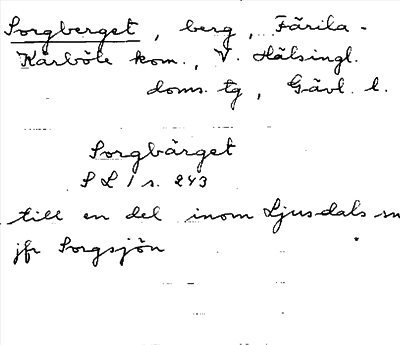 Sorgberget, berg, Färila-
Kårböle kom., V. Hälsingl.
doms. tg, Gävl. l.
Sorgbärget
S L 1 s. 243
till en del inom Ljusdals sn
jfr Sorgsjön